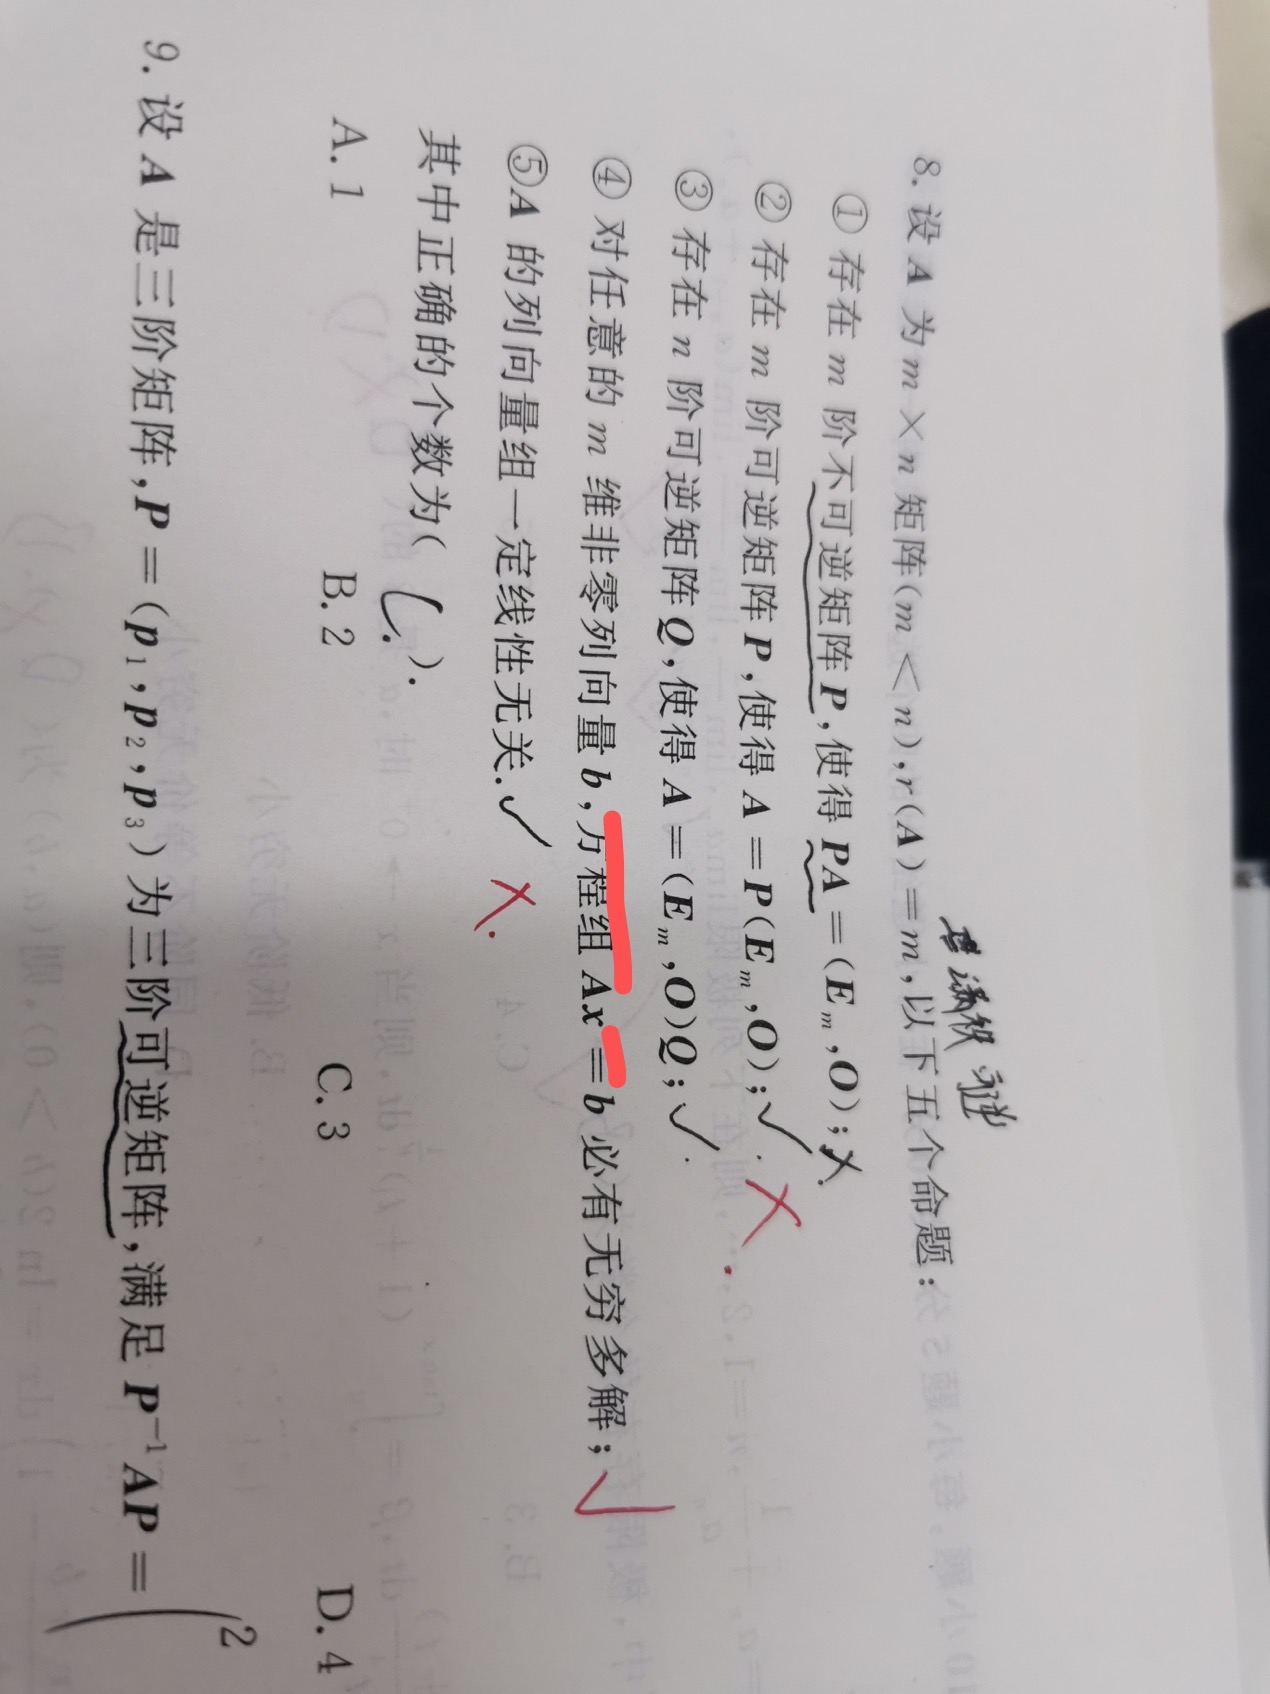 8. 设 A 为 m × n 矩阵(m < n), r(A) = m, 以下五个命题:
① 存在 m 阶不可逆矩阵 P, 使得 PA = (Eₘ, O); ×
② 存在 m 阶可逆矩阵 P, 使得 A = P(Eₘ, O); ✓ ×
③ 存在 n 阶可逆矩阵 Q, 使得 A = (Eₘ, O)Q; ✓
④ 对任意的 m 维非零列向量 b, 方程组 Ax = b 必有无穷多解; ✓
⑤ A 的列向量组一定线性无关. ✓ ×
其中正确的个数为( ).
A. 1 B. 2 C. 3 D. 4
9. 设 A 是三阶矩阵, P = (p₁, p₂, p₃) 为三阶可逆矩阵, 满足 P⁻¹AP = (2